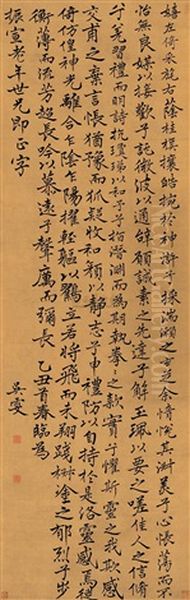 嬉左倚采旄右蔭桂旗攘皓捥於神滸兮採湍瀨之玄芝余情悅其淑美兮心悵蕩而不
怡無良媒以接歡兮託微波以通辭願誠素之先達兮解玉珮以要之嗟佳人之信脩
兮羌習禮而明詩抗瓊珶以和予兮指潛淵而為期執拳拳之款實兮懼斯靈之我欺感
交甫之棄言悵猶豫而狐疑收和顏以靜志兮申禮防以自持於是洛靈感焉徙
倚仿偟神光離合乍陰乍陽擢輕軀以鶴立若將飛而未翔踐椒塗之郁烈兮步
衡薄而流芳超長吟以慕遠兮聲厲而彌長 乙丑首春臨為
振宣老年世兄即正字
吳雯